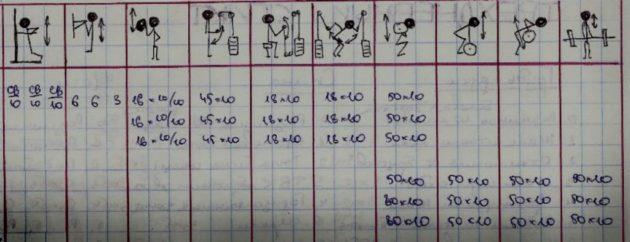 св св св
10 10 10 6 6 3 16×10/10 45×10 18×10 18×10 50×10
16×10/10 45×10 18×10 18×10 50×10
16×10/10 45×10 18×10 18×10 50×10
50×10 50×10 50×10 50×10
80×10 50×10 50×10 50×10
80×10 50×10 50×10 50×10